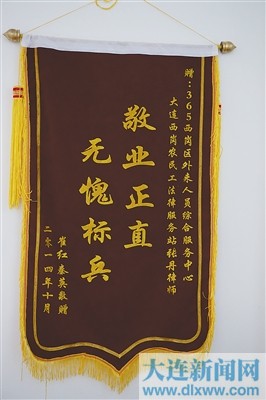 赠：365西岗区外来人员综合服务中心
大连西岗农民工法律服务站张丹律师
敬业正直
无愧标兵
崔红秦英敬赠
二零一四年十月
大连新闻网
www.dlxww.com